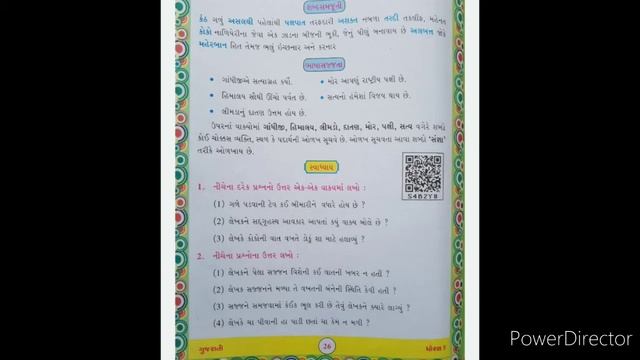 શબ્દસમજૂતી
કંઠ ગળું અસલથી પહેલાંથી પક્ષપાત તરફદારી અશક્ત નબળા તરદી તકલીફ, મહેનત
કોકો નાળિયેરીના જેવા એક ઝાડના બીજની ભૂકી, જેનું પીણું બનાવાય છે અલબત્ત જોકે
મહેરબાન હિત તેમજ ભલું ઇચ્છનાર અને કરનાર
ભાષાસજ્જતા
• ગાંધીજીએ સત્યાગ્રહ કર્યો.
• મોર આપણું રાષ્ટ્રીય પક્ષી છે.
• હિમાલય સૌથી ઊંચો પર્વત છે.
• સત્યનો હંમેશાં વિજય થાય છે.
• લીમડાનું દાતણ ઉત્તમ હોય છે.
ઉપરનાં વાક્યોમાં ગાંધીજી, હિમાલય, લીમડો, દાતણ, મોર, પક્ષી, સત્ય વગેરે શબ્દો
કોઈ ચોક્કસ વ્યક્તિ, સ્થળ કે પદાર્થની ઓળખ સૂચવે છે. ઓળખ સૂચવતા આવા શબ્દો 'સંજ્ઞા'
તરીકે ઓળખાય છે.
સ્વાધ્યાય
1. નીચેના દરેક પ્રશ્નનો ઉત્તર એક-એક વાક્યમાં લખો :
(1) ગળે પડવાની ટેવ કઈ બીમારીને વધારે હોય છે ?
(2) લેખકને સદ્ગૃહસ્થ આવકાર આપતાં કયું વાક્ય બોલે છે ?
(3) લેખકે કોકોની વાત વખતે ડોકું શા માટે હલાવ્યું ?
S4B2Y8
2. નીચેના પ્રશ્નોના ઉત્તર લખો :
(1) લેખકને પેલા સજ્જન વિશેની કઈ વાતની ખબર ન હતી ?
(2) લેખક સજ્જનને મળ્યા તે વખતની બંનેની સ્થિતિ કેવી હતી ?
(3) સજ્જનને સમજવામાં કંઈક ભૂલ કરી છે તેવું લેખકને ક્યારે લાગ્યું ?
(4) લેખકે ચા પીવાની હા પાડી છતાં ચા કેમ ન મળી ?
ગુજરાતી
26
ધોરણ 7
PowerDirector